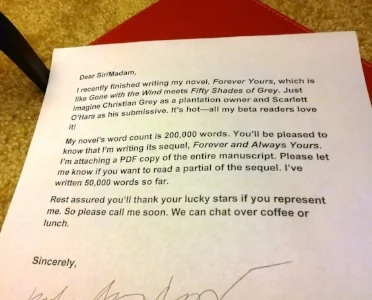 Dear Sir/Madam,
I recently finished writing my novel, Forever Yours, which is
like Gone with the Wind meets Fifty Shades of Grey. Just
imagine Christian Grey as a plantation owner and Scarlett
O'Hara as his submissive. It's hot—all my beta readers love
it!
My novel's word count is 200,000 words. You'll be pleased to
know that I'm writing its sequel, Forever and Always Yours.
I'm attaching a PDF copy of the entire manuscript. Please let
me know if you want to read a partial of the sequel. I've
written 50,000 words so far.
Rest assured you'll thank your lucky stars if you represent
me. So please call me soon. We can chat over coffee or
lunch.
Sincerely,